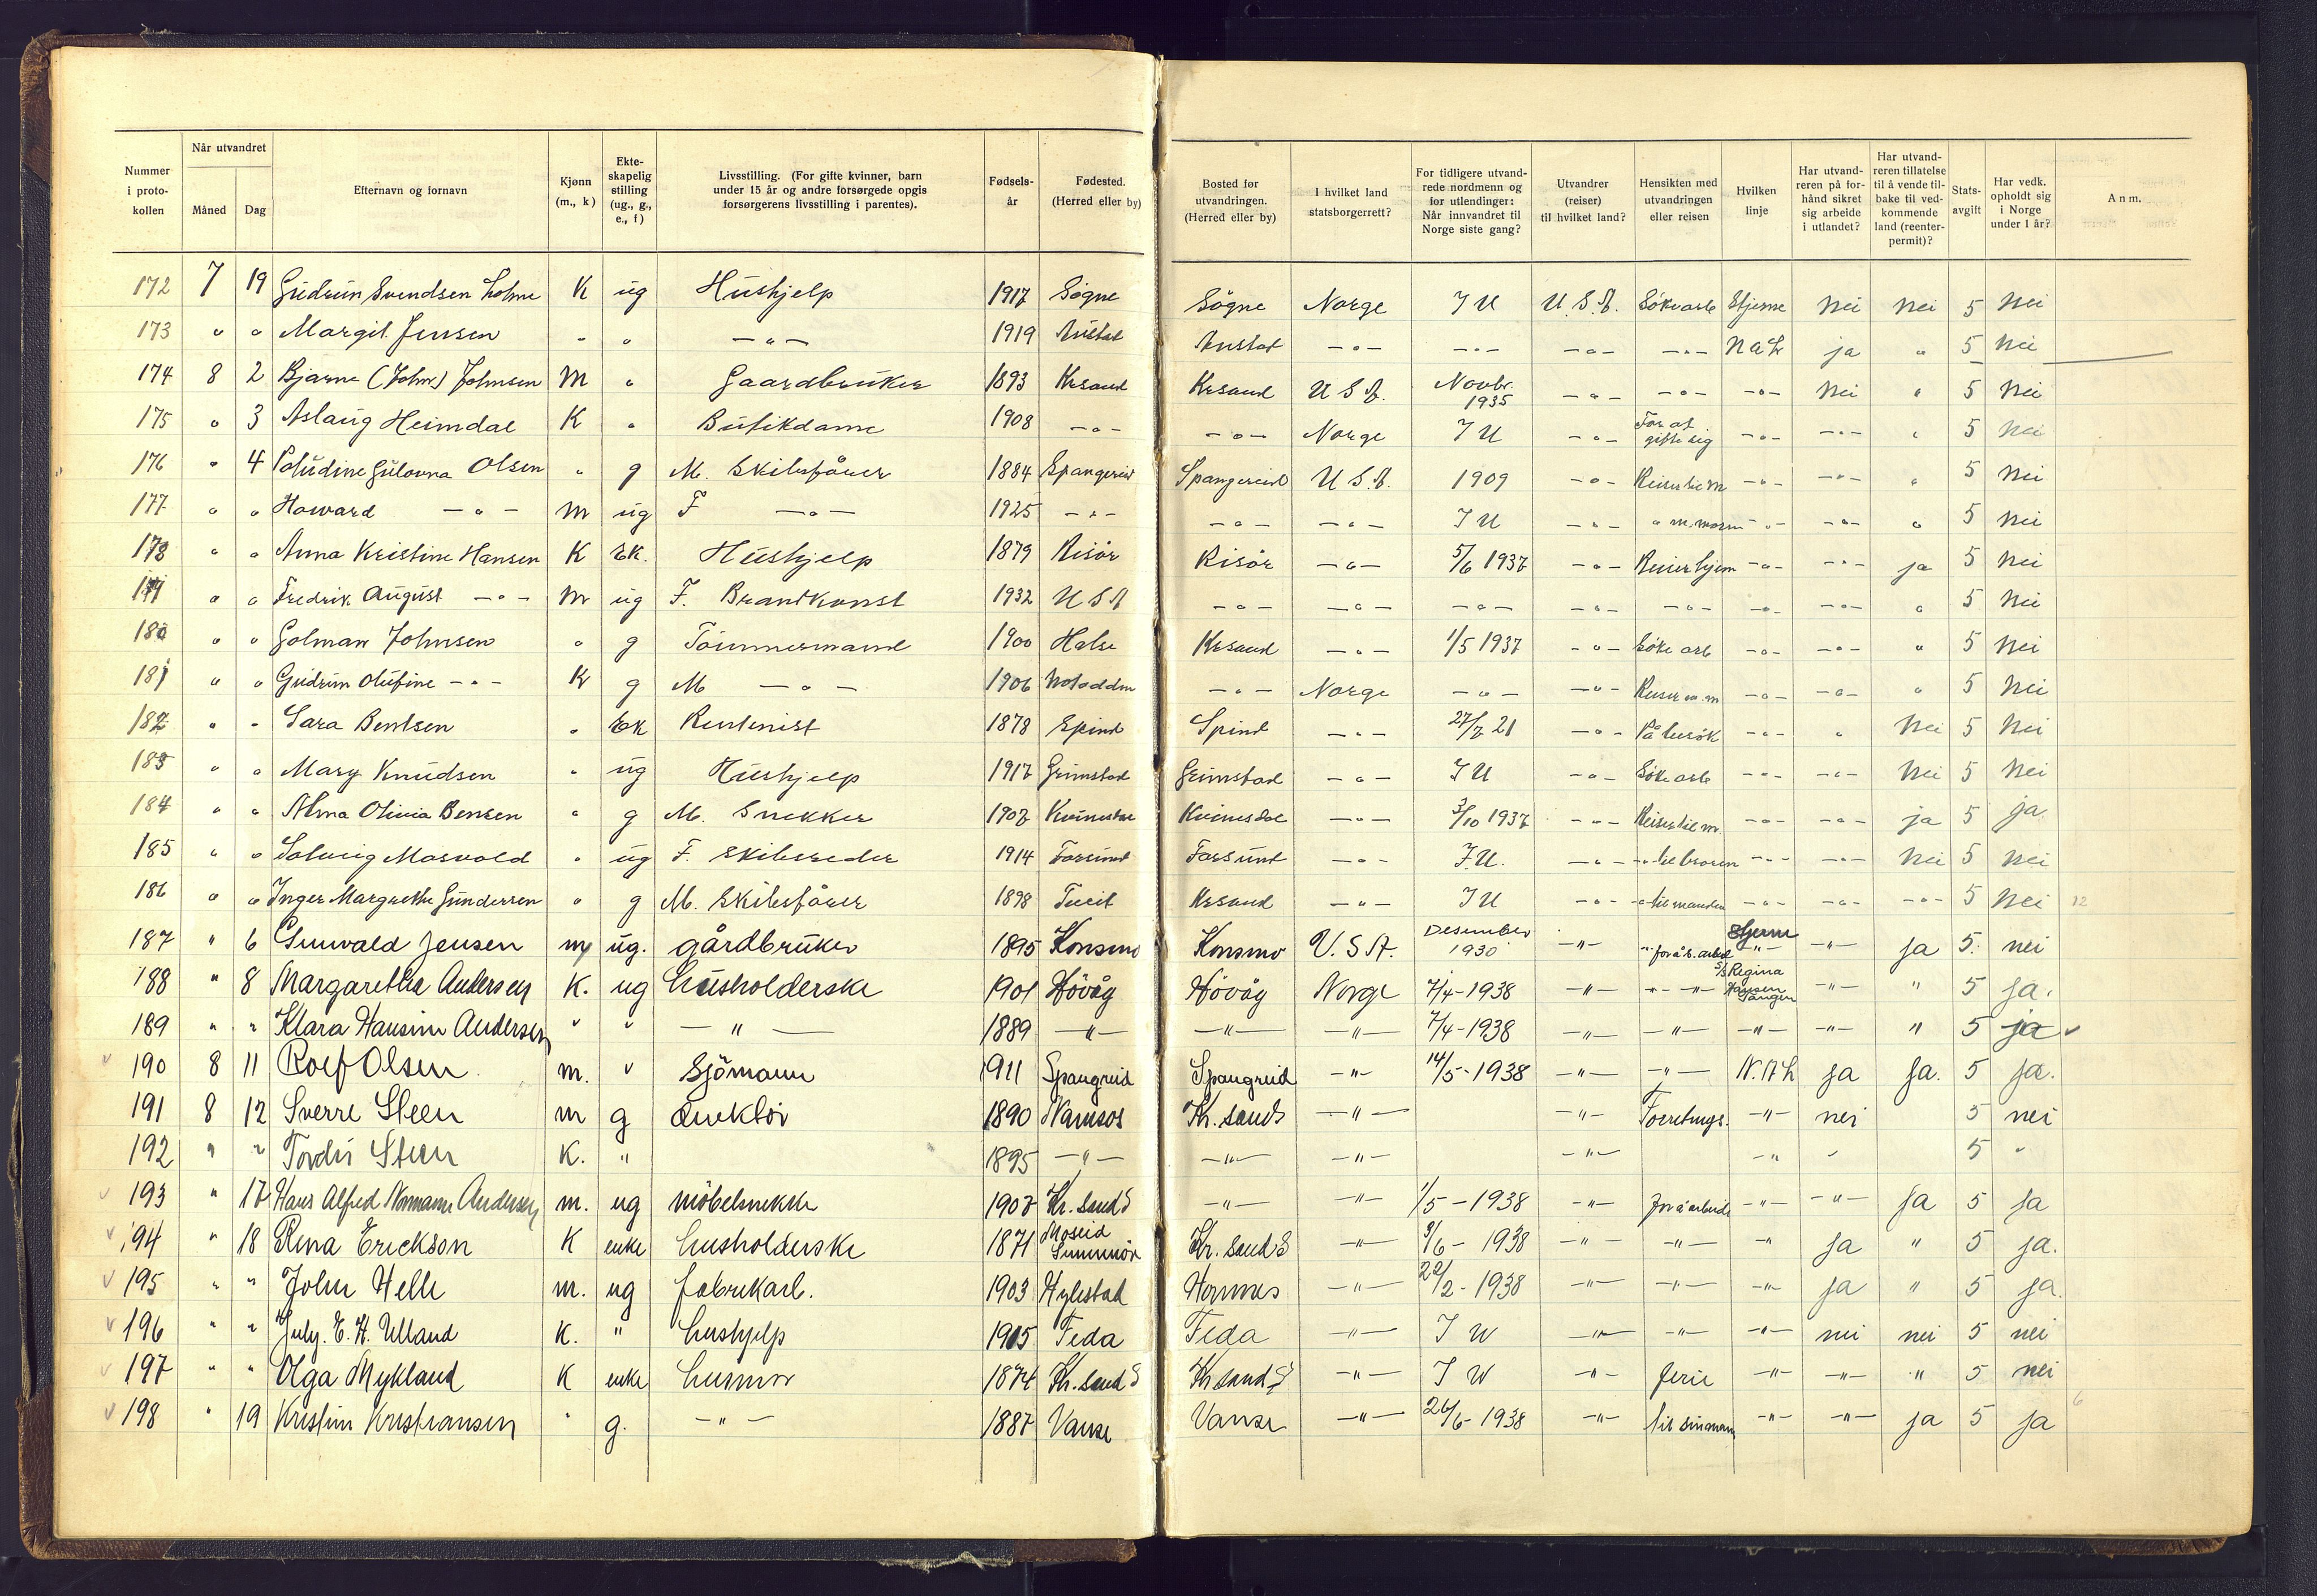 Nummer i proto-kollen | Når utvandret Måned | Dag | Efternavn og fornavn | Kjønn (m., k) | Ekte-skapelig stilling (ug., g., e., f) | Livsstilling. (For gifte kvinner, barn under 15 år og andre forsørgede opgis forsørgerens livsstilling i parentes). | Fødsels-år | Fødested. (Herred eller by) | Bosted før utvandringen. (Herred eller by) | I hvilket land statsborgerrett? | For tidligere utvand-rede nordmenn og for utlendinger: Når innvandret til Norge siste gang? | Utvandrer (reiser) til hvilket land? | Hensikten med utvandringen eller reisen | Hvilken linje | Har utvand-reren på for-hånd sikret sig arbeide i utlandet? | Har utvand-reren tillatelse til å vende til-bake til ved-kommende land (reenter-permit)? | Stats-avgift | Har vedk. opholdt sig i Norge under 1 år? | Anm.
172 7 19 Gudrun Svendsen Holme K ug Hushjelp 1917 Søgne Søgne Norge I U U.S.A. Søke arb Stjerne Nei Nei 5 Nei
173 " " Margit Jensen " " —"— 1919 —"— —"— —"— —"— N a L ja " 5 Nei
174 8 2 Bjarne (John) Johnsen M " Gaardbruker 1893 Krsand Krsand U S A. Novbr. 1935 —"— —"— —"— Nei " 5 Nei
175 " 3 Aslaug Heimdal K " Butikdame 1908 —"— —"— Norge I U —"— For at gifte sig —"— —"— " 5 Nei
176 " 4 Olsen " g M. Skibsfører 1884 Spangereid Spangereid U.S.A. 1909 —"— Reiser til m —"— —"— " 5 Nei
177 " " Howard —"— M ug F —"— 1925 —"— —"— —"— I U —"— " —"— —"— " 5 Nei
178 " " Anna Kristine Hansen K Ek. Hushjelp 1879 Risör Risör —"— 5/6 1937 —"— Reiser hjem —"— —"— ja 5 Nei
179 " " Fredrik August —"— M ug F. 1932 U S A —"— —"— —"— —"— —"— —"— —"— " 5 Nei
180 " " Golman Johnsen " g Tömmermand 1900 Halse Krsand —"— 1/5 1937 —"— Söke arb —"— —"— " 5 Nei
181 " " Gudrun Olufine —"— K g M —"— 1906 Notodden —"— Norge —"— —"— Reiser m. m —"— —"— " 5 Nei
182 " " Sara Bentsen " Ek Rentenist 1878 Spind Spind —"— 27/7 21 —"— På besök —"— " Nei 5 Nei
183 " " Mary Knudsen " ug Hushjelp 1917 Grimstad Grimstad —"— I U —"— Söke arb —"— —"— Nei 5 Nei
184 " " Alma Olivia Bensen " g M. Snekker 1907 Kvinesdal Kvinesdal —"— 3/10 1937 —"— Reiser til m. —"— —"— ja 5 ja
185 " " Solveig Mosvold " ug F. Skibsreder 1914 Farsund Farsund —"— I.U. —"— " til broren —"— —"— Nei 5 Nei
186 " " Inger Margrethe Gundersen " g M. Skibsfører 1898 Krsand —"— I U —"— " til manden —"— —"— —"— 5 Nei 12
187 " 6 Gunvald Jensen m ug. gårdbruker 1895 Konsmo Konsmo U.S.A. Desember 1930 —"— " for å s. arbed Stjerne —"— —"— ja 5. nei
188 " 8 Margarethe Andersen K. ug Husholderske 1901 Hövåg Hövåg Norge 7/4-1938 —"— —"— S/S Regina Hansen Tangen —"— " 5 ja.
189 " " Klara Hansine Andersen " " —"— 1889 —"— —"— —"— 7/4-1938 —"— —"— —"— —"— " 5 ja
190 8 11 Rolf Olsen m. " Sjömann 1911 Spangreid Spangreid —"— 14/5-1938 —"— —"— N.A.L ja ja. 5 ja.
191 8 12 Sverre Steen m g direktör 1890 Namsos Kr. sand S —"— —"— Forretnings. —"— nei 5 nei
192 " " Tordis Steen K. " 1895 —"— —"— —"— —"— —"— " 5 "
193 " 17 Hans Alfred Normann Andersen m. ug möbelsnekker 1907 Kr. sand S —"— —"— 1/5-1938 —"— for å arbeide —"— —"— ja 5 ja
194 " 18 Rena Erickson K enke husholderske 1871 Kr. sand S —"— 9/6-1938 —"— —"— —"— ja " 5 ja.
195 " " John Helle m. ug fabrikarb. 1903 Hylestad Hornnes —"— 22/2-1938 —"— —"— —"— ja " 5 ja.
196 " " July. E. H. Ulland K. " hushjelp 1915 Feda Feda —"— I U —"— —"— —"— nei nei 5 nei
197 " " Olga Mykland K enke husmor 1874 Kr. sand S Kr sand S —"— I U —"— ferie —"— —"— " 5 nei
198 " 19 Kristine Kristiansen " g. —"— 1887 Vanse Vanse —"— 26/6-1938 —"— til sin mann —"— —"— ja 5 ja 6